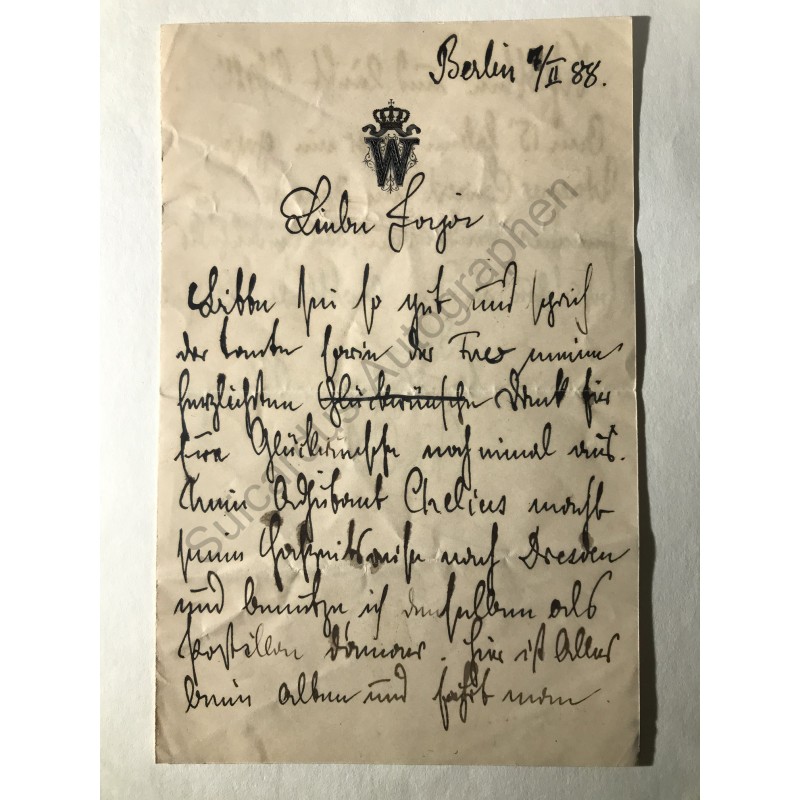 Berlin 7/II 88.
W
Lieber
Bitte sei so gut und sprich
der Tante meinen
herzlichsten Glückwünsche Dank für
Eure Glückwünsche noch einmal aus.
Mein Adjutant Chelius macht
seine Hochzeitsreise nach Dresden
und benutze ich denselben als
Postillon d'amour. Hier ist Alles
beim alten und fährt man
Suicardus-Autographen